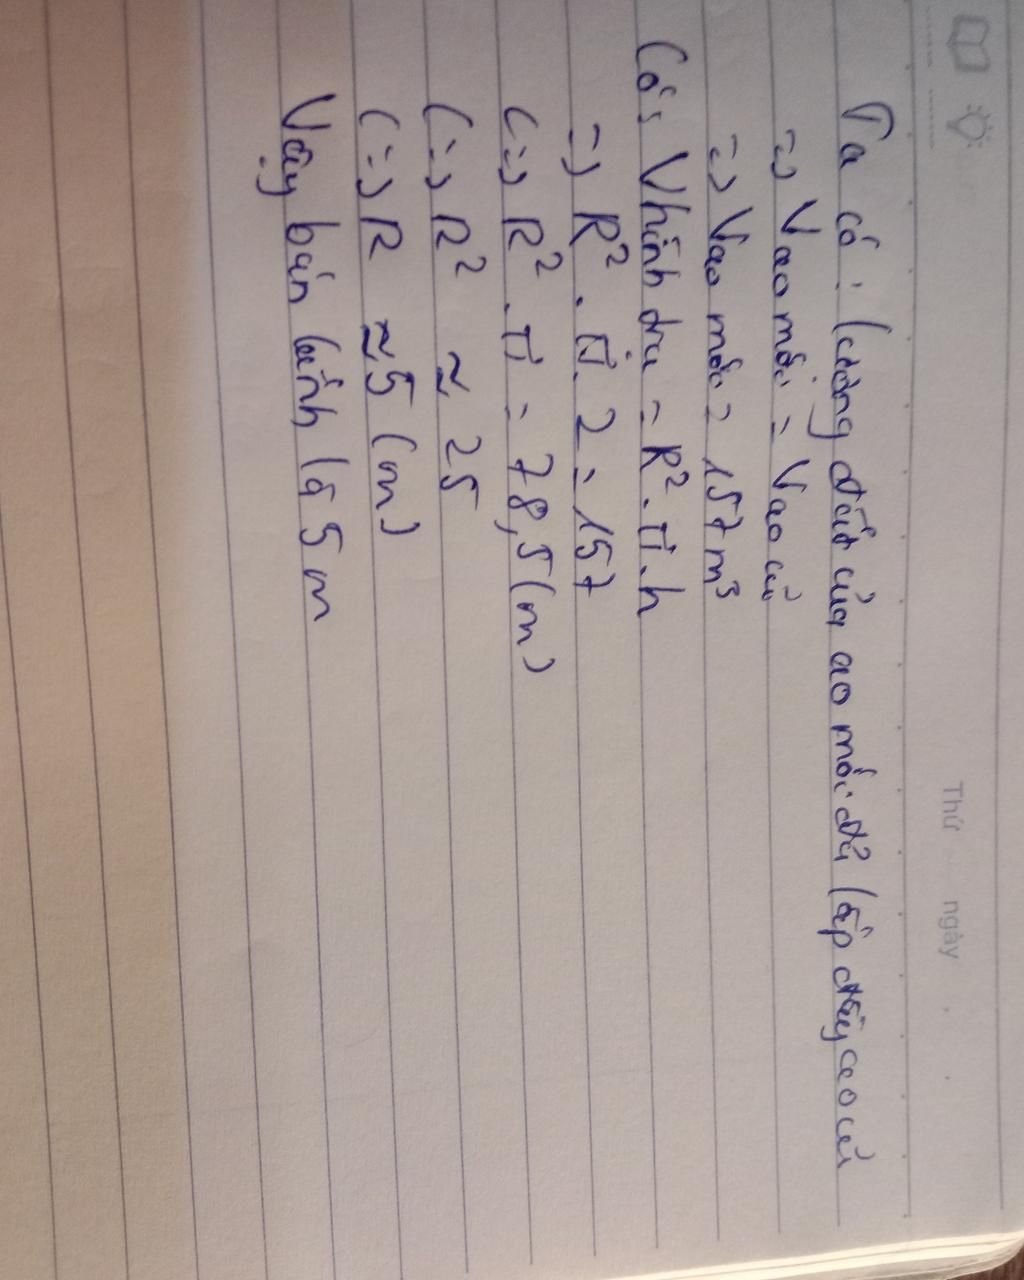 Thứ ngày . .
Ta có: lượng đất của ao mới đủ lấp đầy ao cũ
=> Vao mới = Vao cũ
=> Vao mới = 157 m³
Có: Vhình trụ = R². π. h
=> R². π. 2 = 157
<=> R². π = 78,5 (m)
<=> R² ≈ 25
<=> R ≈ 5 (m)
Vậy bán kính là 5 m